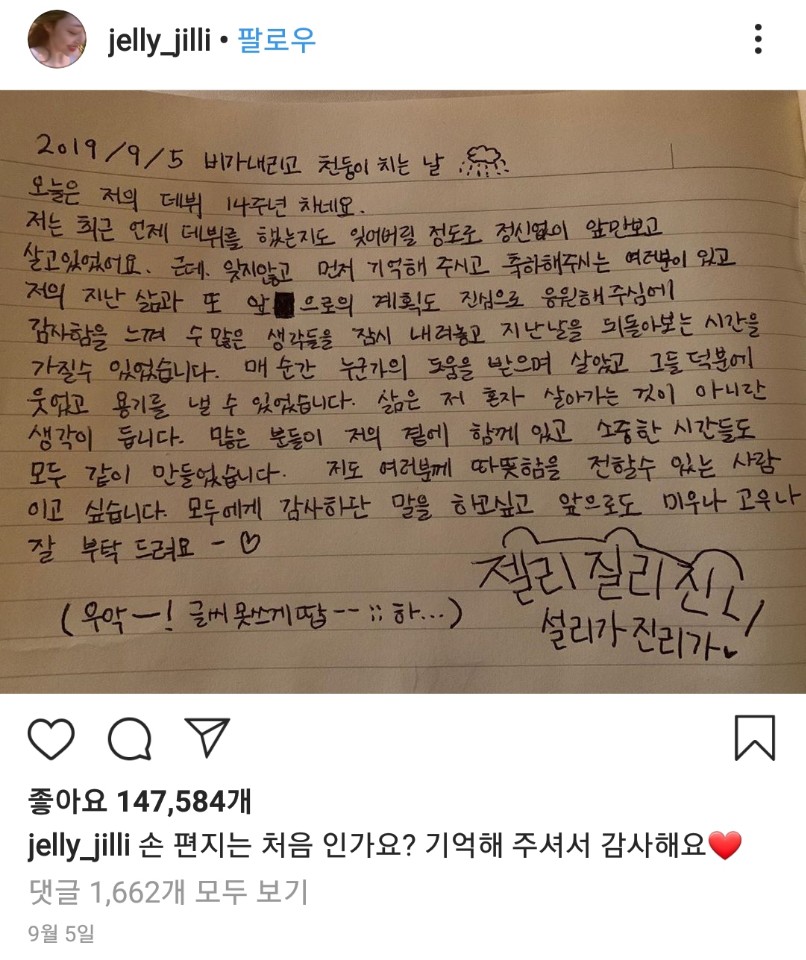 jelly_jilli • 팔로우
2019/9/5 비가내리고 천둥이 치는 날
오늘은 저의 데뷔 14주년 차네요.
저는 최근 언제 데뷔를 했는지도 잊어버릴 정도로 정신없이 앞만보고
살고있었어요. 근데. 잊지않고 먼저 기억해 주시고 축하해주시는 여러분이 있고
저의 지난 삶과 또 앞으로의 계획도 진심으로 응원해 주심에
감사함을 느껴 수 많은 생각들을 잠시 내려놓고 지난날을 되돌아보는 시간을
가질수 있었습니다. 매 순간 누군가의 도움을 받으며 살았고 그들 덕분에
웃었고 용기를 낼 수 있었습니다. 삶은 저 혼자 살아가는 것이 아니란
생각이 듭니다. 많은 분들이 저의 곁에 함께 있고 소중한 시간들도
모두 같이 만들었습니다. 저도 여러분께 따뜻함을 전할수 있는 사람
이고 싶습니다. 모두에게 감사하단 말을 하고싶고 앞으로도 미우나 고우나
잘 부탁 드려요 - ♡
젤리 질리 진리
(우악ㅡ! 글씨 못쓰게땁-- ;; 하...)
설리가 진리가
좋아요 147,584개
jelly_jilli 손 편지는 처음 인가요? 기억해 주셔서 감사해요❤️
댓글 1,662개 모두 보기
9월 5일